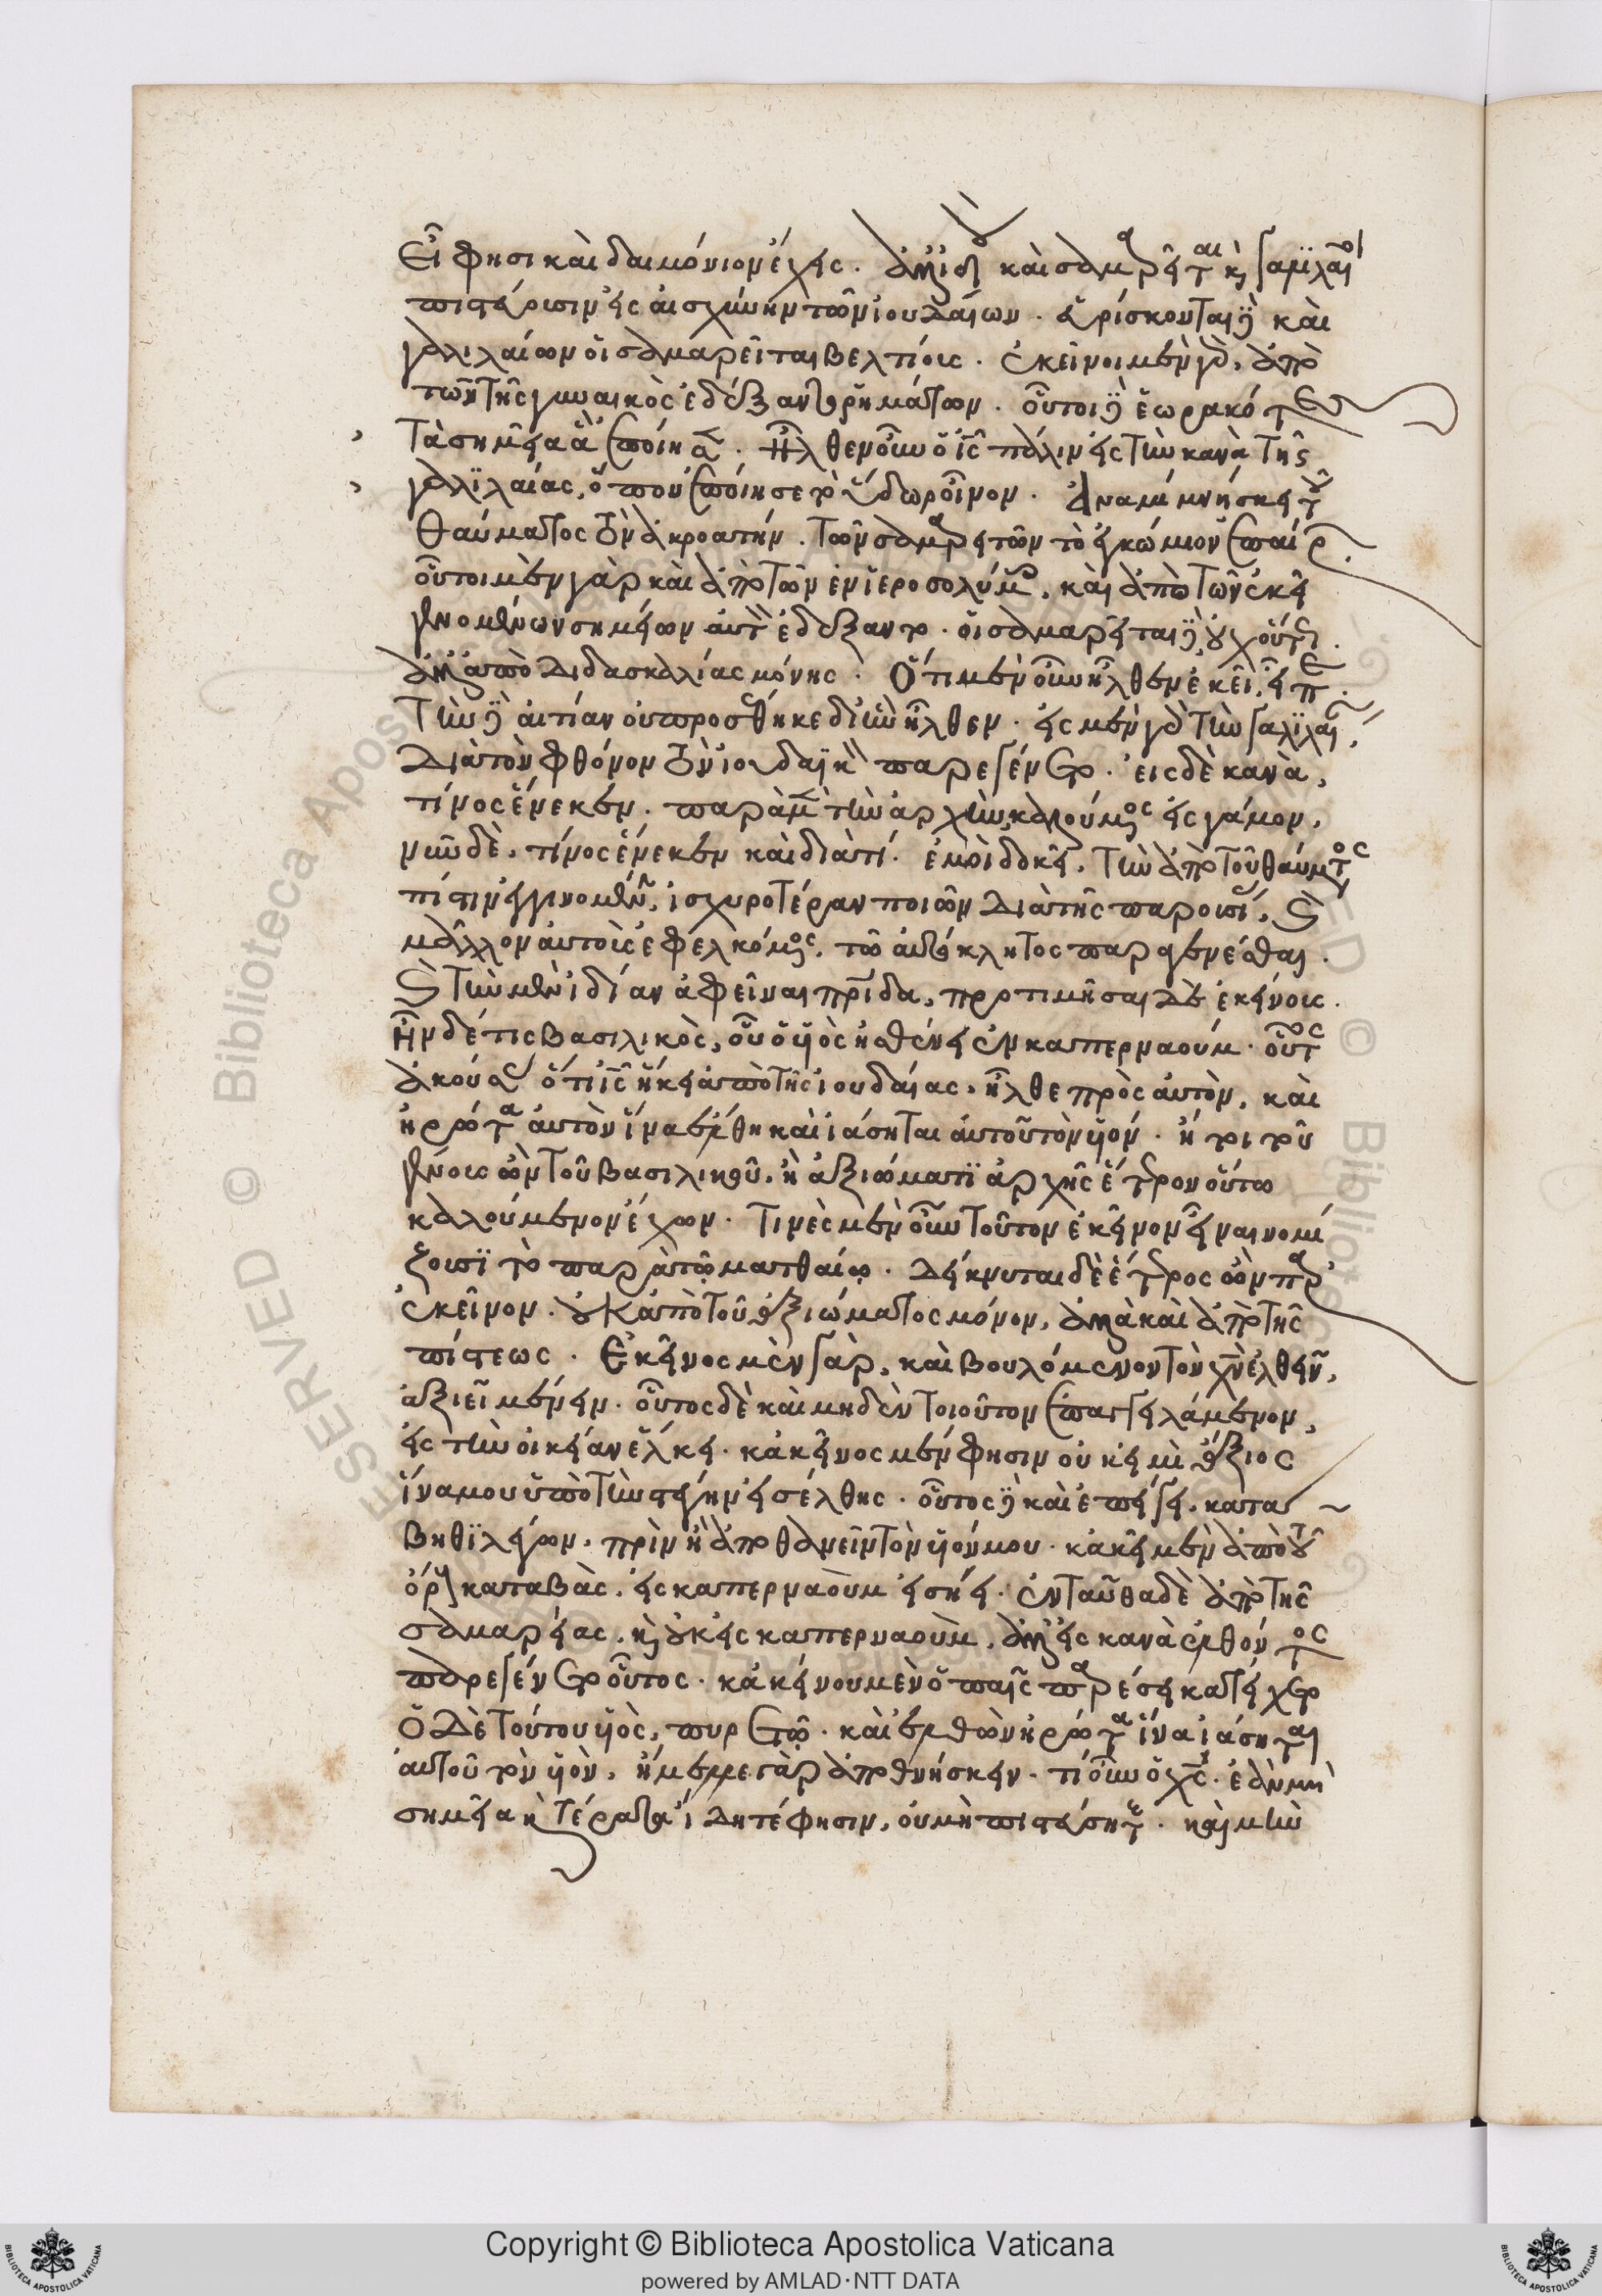 εἶ φησι καὶ δαιμόνιον ἔχεις. ἀλλ' ἰδοὺ καὶ σαμαρεῖται κ γαλιλαῖοι
πιστεύουσιν εἰς αἰσχύνην τῶν ἰουδαίων. εὑρίσκονται δὲ καὶ
γαλιλαίων οἱ σαμαρεῖται βελτίους. ἐκεῖνοι μὲν γὰρ, ἀπὸ
τῶν τῆς γυναικὸς ἐδέξαντο ῥημάτων. οὗτοι δὲ ἑωρακότες
τὰ σημεῖα ἃ ἐποίησεν. ἦλθεν οὖν ὁ ἰς πάλιν εἰς τὴν κανὰ τῆς
γαλιλαίας, ὅπου ἐποίησε τὸ ὕδωρ οἶνον. ἀναμιμνήσκει τοῦ
θαύματος τὸν ἀκροατήν. τῶν σαμαρειτῶν τὸ ἐγκώμιον ἐπαίρων.
οὗτοι μὲν γὰρ καὶ ἀπὸ τῶν ἐν ἱεροσολύμοις, καὶ ἀπὸ τῶν ἐκεῖ
γενομένων σημείων αὐτὸν ἐδέξαντο. οἱ σαμαρεῖται δὲ, οὐχ οὕτως.
ἀλλ' ἀπὸ διδασκαλίας μόνης. ὅτι μὲν οὖν ἦλθεν ἐκεῖ, εἶπε.
τὴν δὲ αἰτίαν οὐ προσέθηκε δι' ἣν ἦλθεν. εἰς μὲν γὰρ τὴν γαλιλαίαν,
διὰ τὸν φθόνον τὸν ἰουδαϊκὸν παρεγένετο. εἰς δὲ κανὰ,
τίνος ἕνεκεν. παρὰ μὲν τὴν ἀρχὴν, καλούμενος εἰς γάμον,
νῦν δὲ, τίνος ἕνεκεν καὶ διατί. ἐμοὶ δοκεῖ, τὴν ἀπὸ τοῦ θαύματος
πίστιν ἐγγινομένην, ἰσχυροτέραν ποιῶν διὰ τῆς παρουσίας, καὶ
μᾶλλον αὐτοὺς ἐφελκόμενος, τῷ αὐτόκλητος παραγενέσθαι.
καὶ τὴν μὲν ἰδίαν ἀφεῖναι πρίδα, προτιμῆσαι δὲ ἐκείνους.
ἦν δέ τις βασιλικὸς, οὗ ὁ υἱὸς ἠσθένει ἐν καπερναούμ. οὗτος
ἀκούσας ὅτι ἰς ἥκει ἀπὸ τῆς ἰουδαίας, ἦλθε πρὸς αὐτὸν, καὶ
ἠρώτα αὐτὸν ἵνα ἔλθη καὶ ἰάσηται αὐτοῦ τὸν υἱόν. ἤτοι τοῦ
γένους ὢν τοῦ βασιλικοῦ, ἢ ἀξίωμά τι ἀρχῆς ἕτερον οὕτω
καλούμενον ἔχων. τινὲς μὲν οὖν τοῦτον ἐκεῖνον εἶναι νομί
ζουσι τὸ παρὰ τῷ ματθαίῳ. δείκνυται δὲ ἕτερος ὢν παρ'
ἐκεῖνον. οὐκ ἀπὸ τοῦ ἀξιώματος μόνον, ἀλλὰ καὶ ἀπὸ τῆς
πίστεως. ἐκεῖνος μὲν γὰρ, καὶ βουλόμενον τὸν χν ἐλθεῖν,
ἀξιεῖ μένειν. οὗτος δὲ καὶ μηδὲν τοιοῦτον ἐπαγγειλάμενον,
εἰς τὴν οἰκείαν ἕλκει. κἀκεῖνος μέν φησιν οὐκ εἰμὶ ἄξιος
ἵνα μου ὑπὸ τὴν στέγην εἰσέλθης. οὗτος δὲ καὶ ἐπείγει, κατα
βηθι λέγων, πρὶν ἢ ἀποθανεῖν τὸν υἱόν μου. κἀκεῖ μὲν ἀπὸ τοῦ
ὄρους καταβὰς, εἰς καπερναοὺμ εἰσήει. ἐνταῦθα δὲ ἀπὸ τῆς
σαμαρείας, κ οὐκ εἰς καπερναοὺμ, ἀλλ' εἰς κανὰ ἐλθόντος
παρεγένετο οὗτος. κἀκείνου μὲν ὁ παῖς παρέσει κατείχετο
ὁ δὲ τούτου υἱὸς, πυρετῷ. καὶ ἐλθὼν ἠρώτα ἵνα ἰάσηται
αὐτοῦ τὸν υἱὸν, ἤμελλε γὰρ ἀποθνήσκειν. τί οὖν ὁ χς. ἐὰν μὴ
σημεῖα κ τέρατα ἴδητέ φησιν, οὐ μὴ πιστεύσητε. καὶ μὴν
Copyright © Biblioteca Apostolica Vaticana
powered by AMLAD·NTT DATA